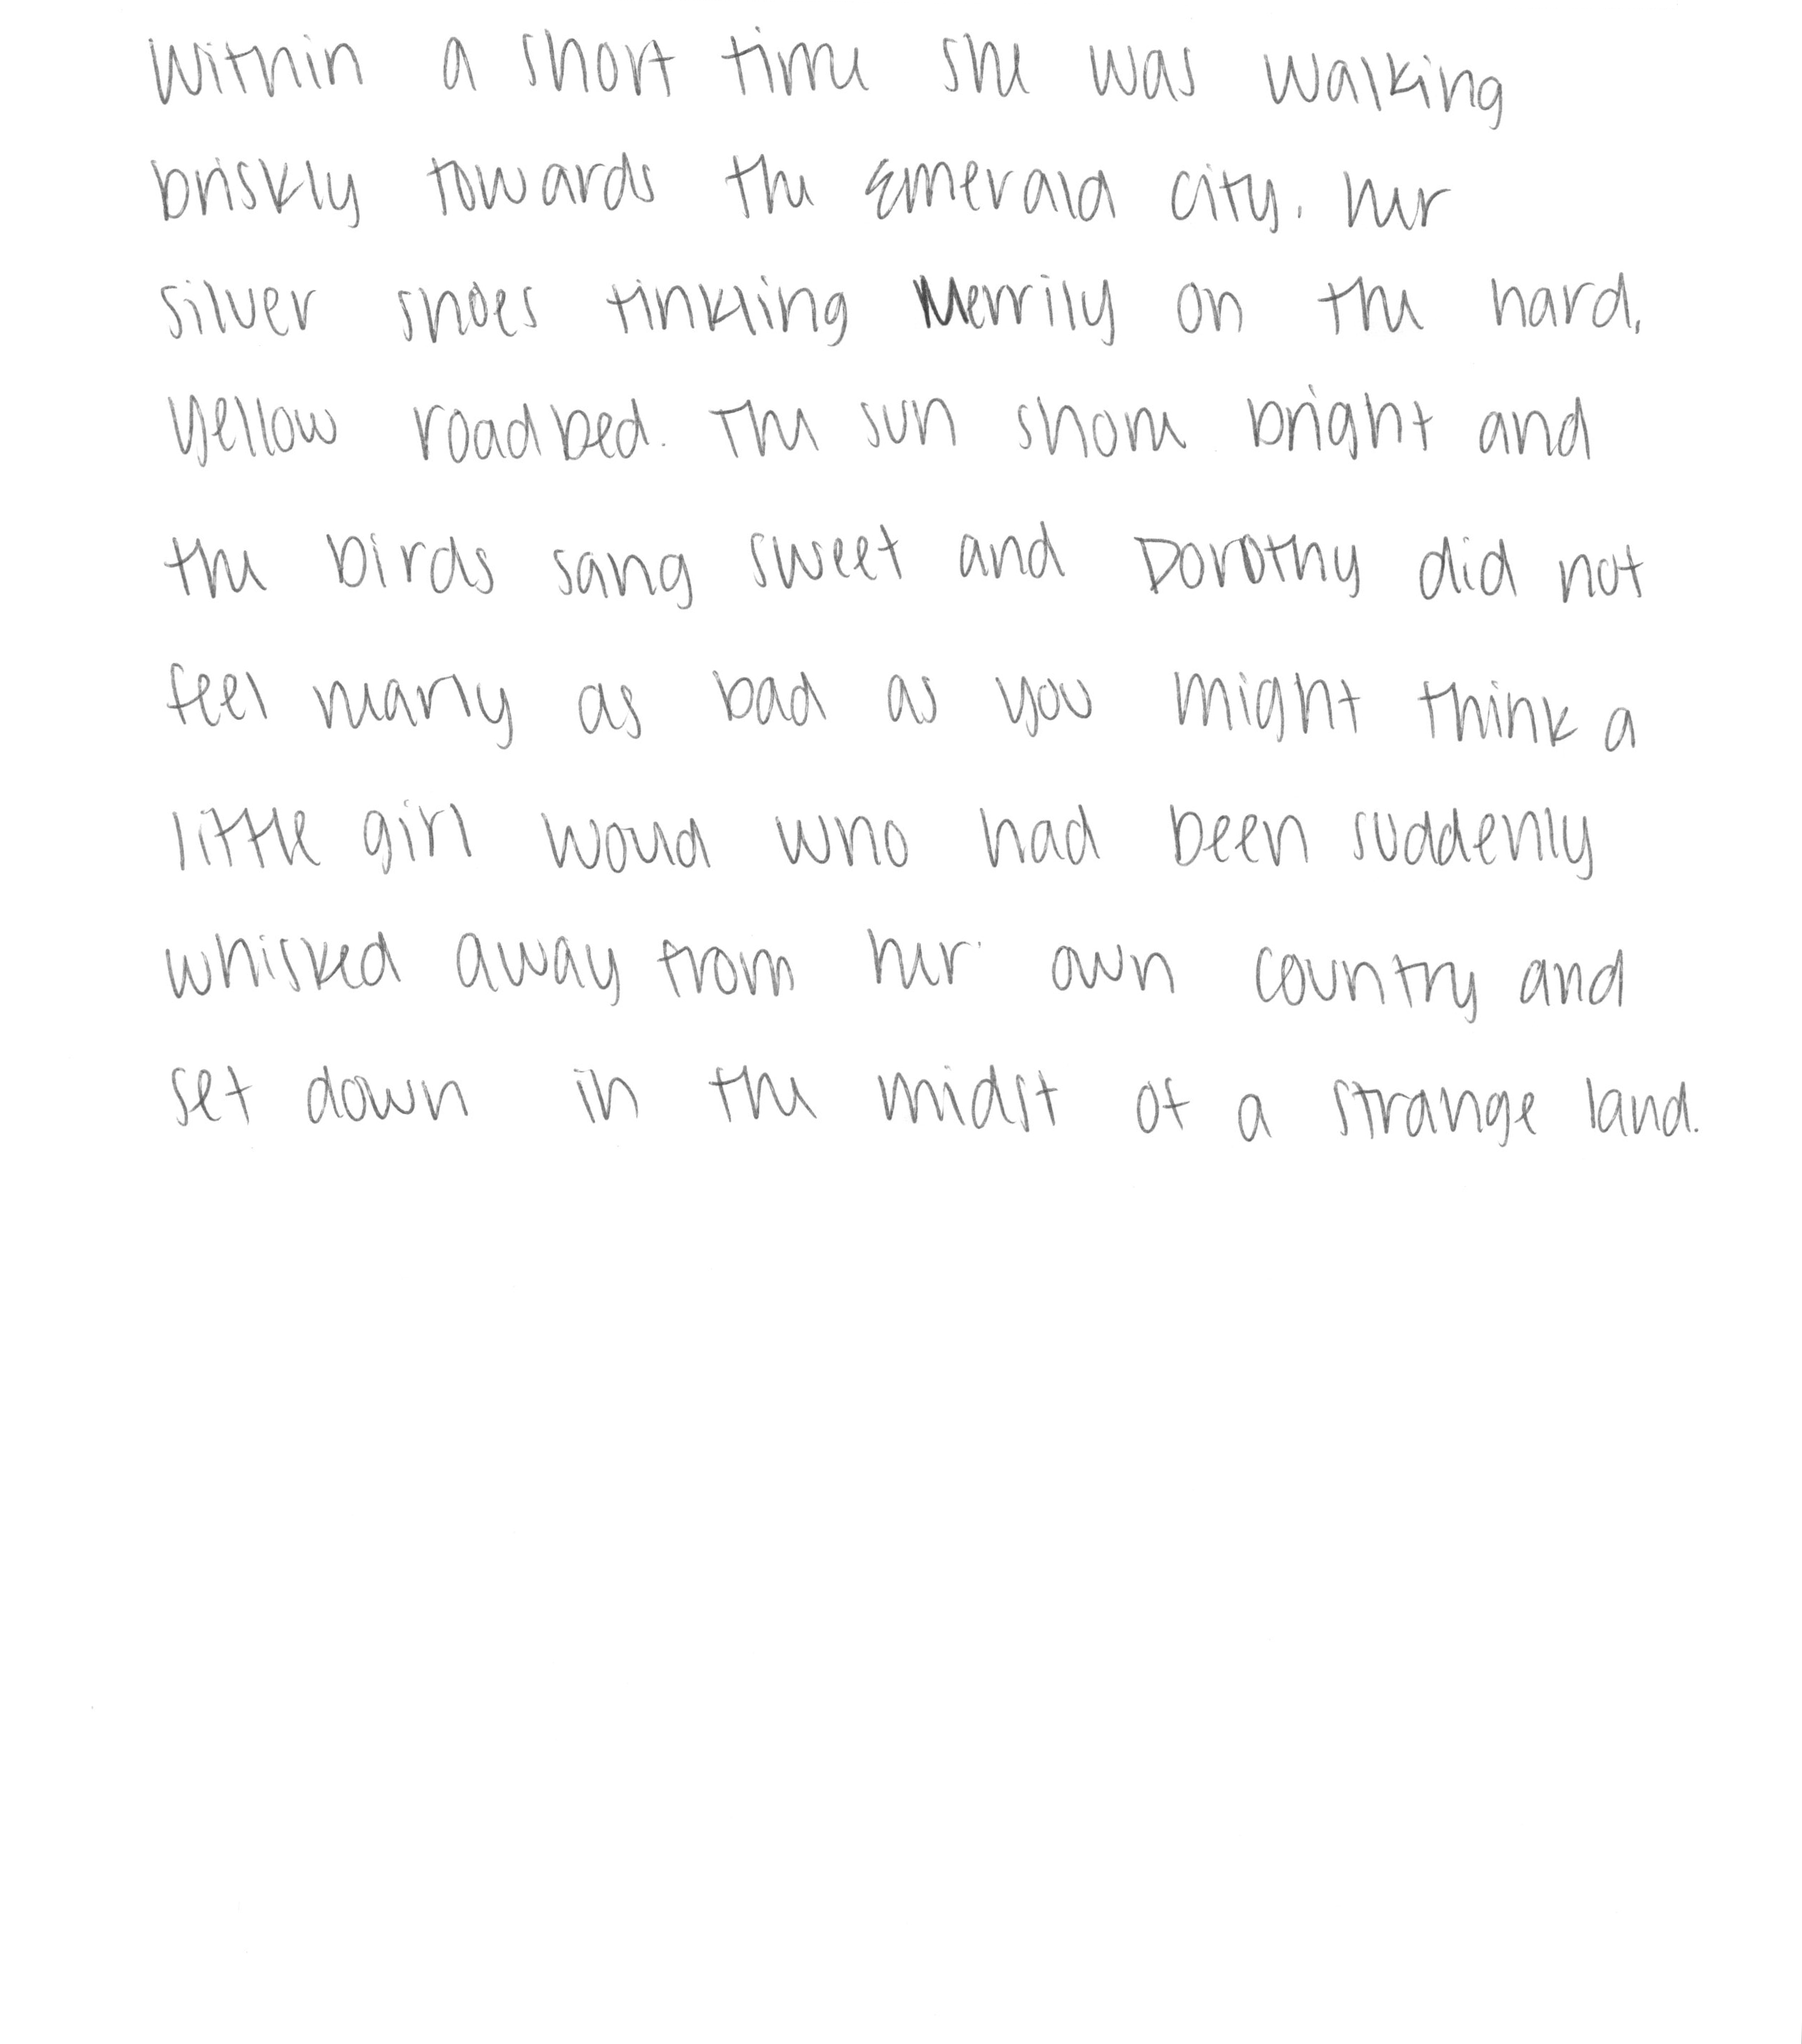 Within a short time she was walking
briskly towards the Emerald city, her
silver shoes tinkling Merrily on the hard,
yellow roadbed. The sun shone bright and
the birds sang sweet and Dorothy did not
feel nearly as bad as you might think a
little girl would who had been suddenly
whisked away from her own country and
set down in the midst of a strange land.